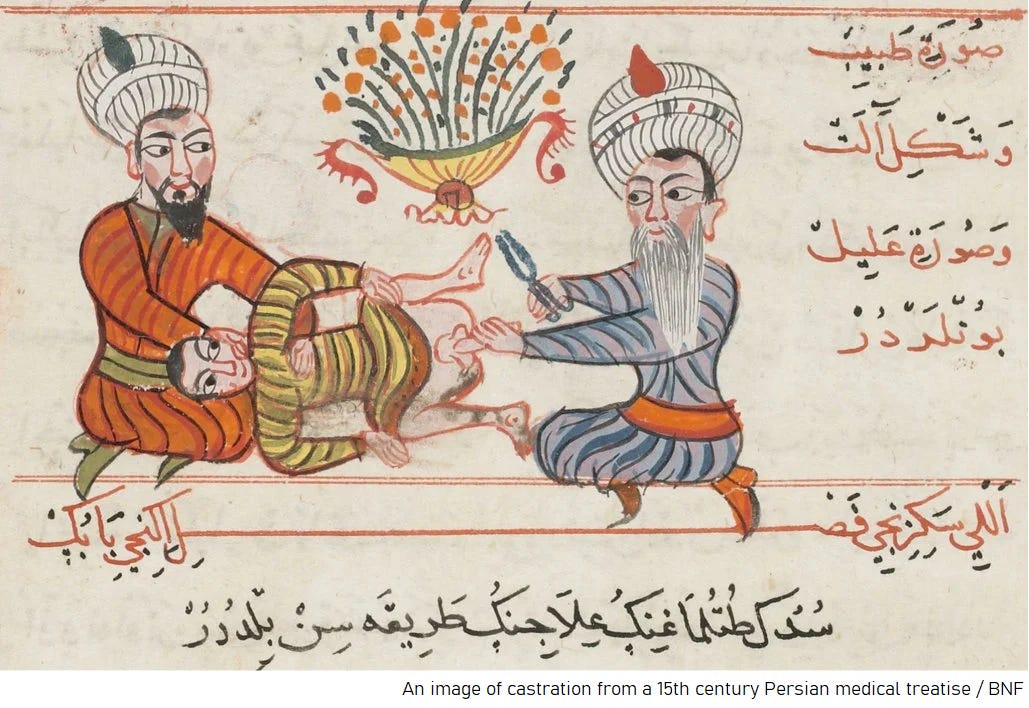 صُورَةِ طَبِيبْ
وَشَكْلِ آلَتْ
وَصُورَةِ عَلِيلْ
بُونْلَرْدُرْ
اَللِّي سَكِزِنْجِي فَصْلِ اِكِنْجِي بَابُكْ
سُدُكْ طُتُلْمَاغِنِكْ عِلَاجِنِكْ طَرِيقَه سِنْ بِلْدُرُرْ
An image of castration from a 15th century Persian medical treatise / BNF